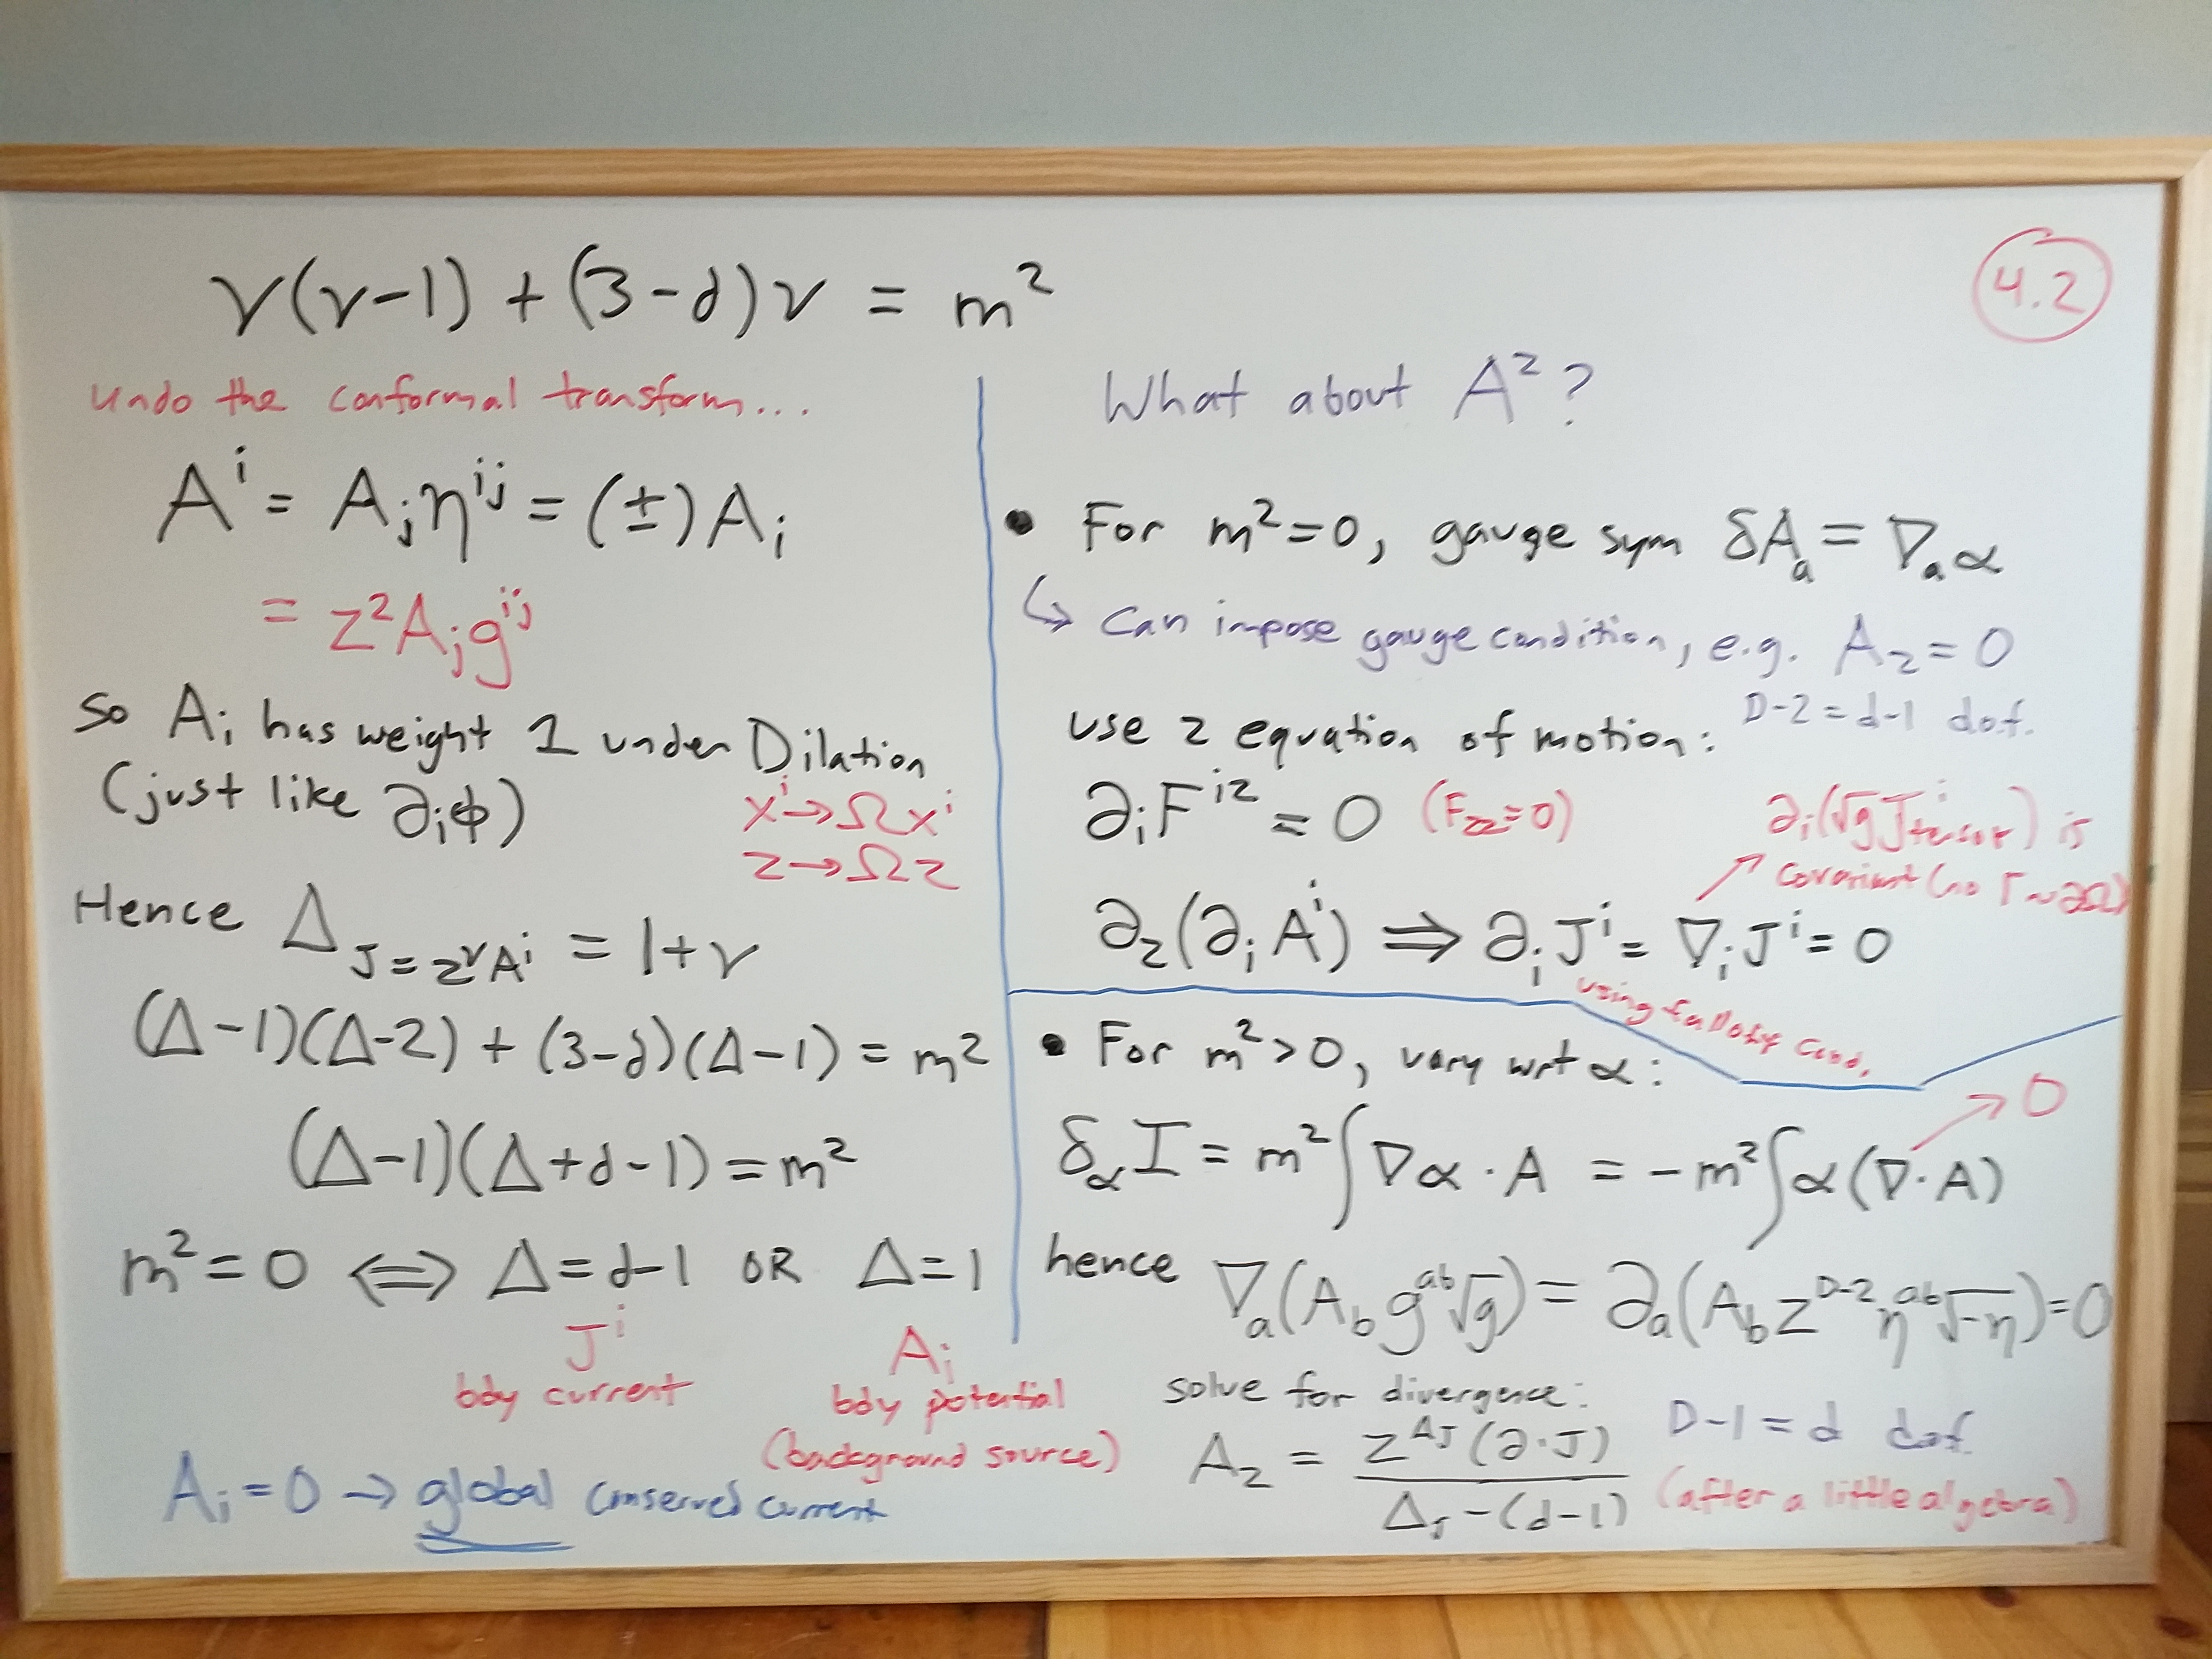 4.2
ν(ν-1) + (3-d)ν = m²
undo the conformal transform...
Aⁱ = Aⱼηⁱʲ = (±)Aᵢ
= z²Aⱼgⁱʲ
So Aᵢ has weight 1 under Dilation
(just like ∂ᵢϕ)
xⁱ→Ωxⁱ
z→Ωz
Hence Δ_{J=z^ν Aⁱ} = 1+ν
(Δ-1)(Δ-2) + (3-d)(Δ-1) = m²
(Δ-1)(Δ+d-1) = m²
m²=0 ⟺ Δ=d-1 OR Δ=1
Jⁱ
bdy current
Aᵢ
bdy potential
(background source)
Aᵢ=0 → global conserved current
What about A^z?
• For m²=0, gauge sym δAₐ = ∇ₐα
↳ Can impose gauge condition, e.g. A_z=0
D-2=d-1 d.o.f.
use z equation of motion:
∂ᵢF^{iz} = 0 (F_{zz}=0)
∂ᵢ(√g Jⁱ_{tensor}) is
covariant (no Γ~∂Ω)
∂_z(∂ᵢAⁱ) ⟹ ∂ᵢJⁱ = ∇ᵢJⁱ = 0
using falloff cond.
• For m²>0, vary wrt α:
δ_α I = m²∫∇α·A = -m²∫α(∇·A) → 0
hence ∇ₐ(A_b g^{ab}√g) = ∂ₐ(A_b z^{D-2} η^{ab}√-η)=0
solve for divergence:
A_z = z^{ΔJ}(∂·J) / Δ_J-(d-1)
D-1=d d.o.f.
(after a little algebra)